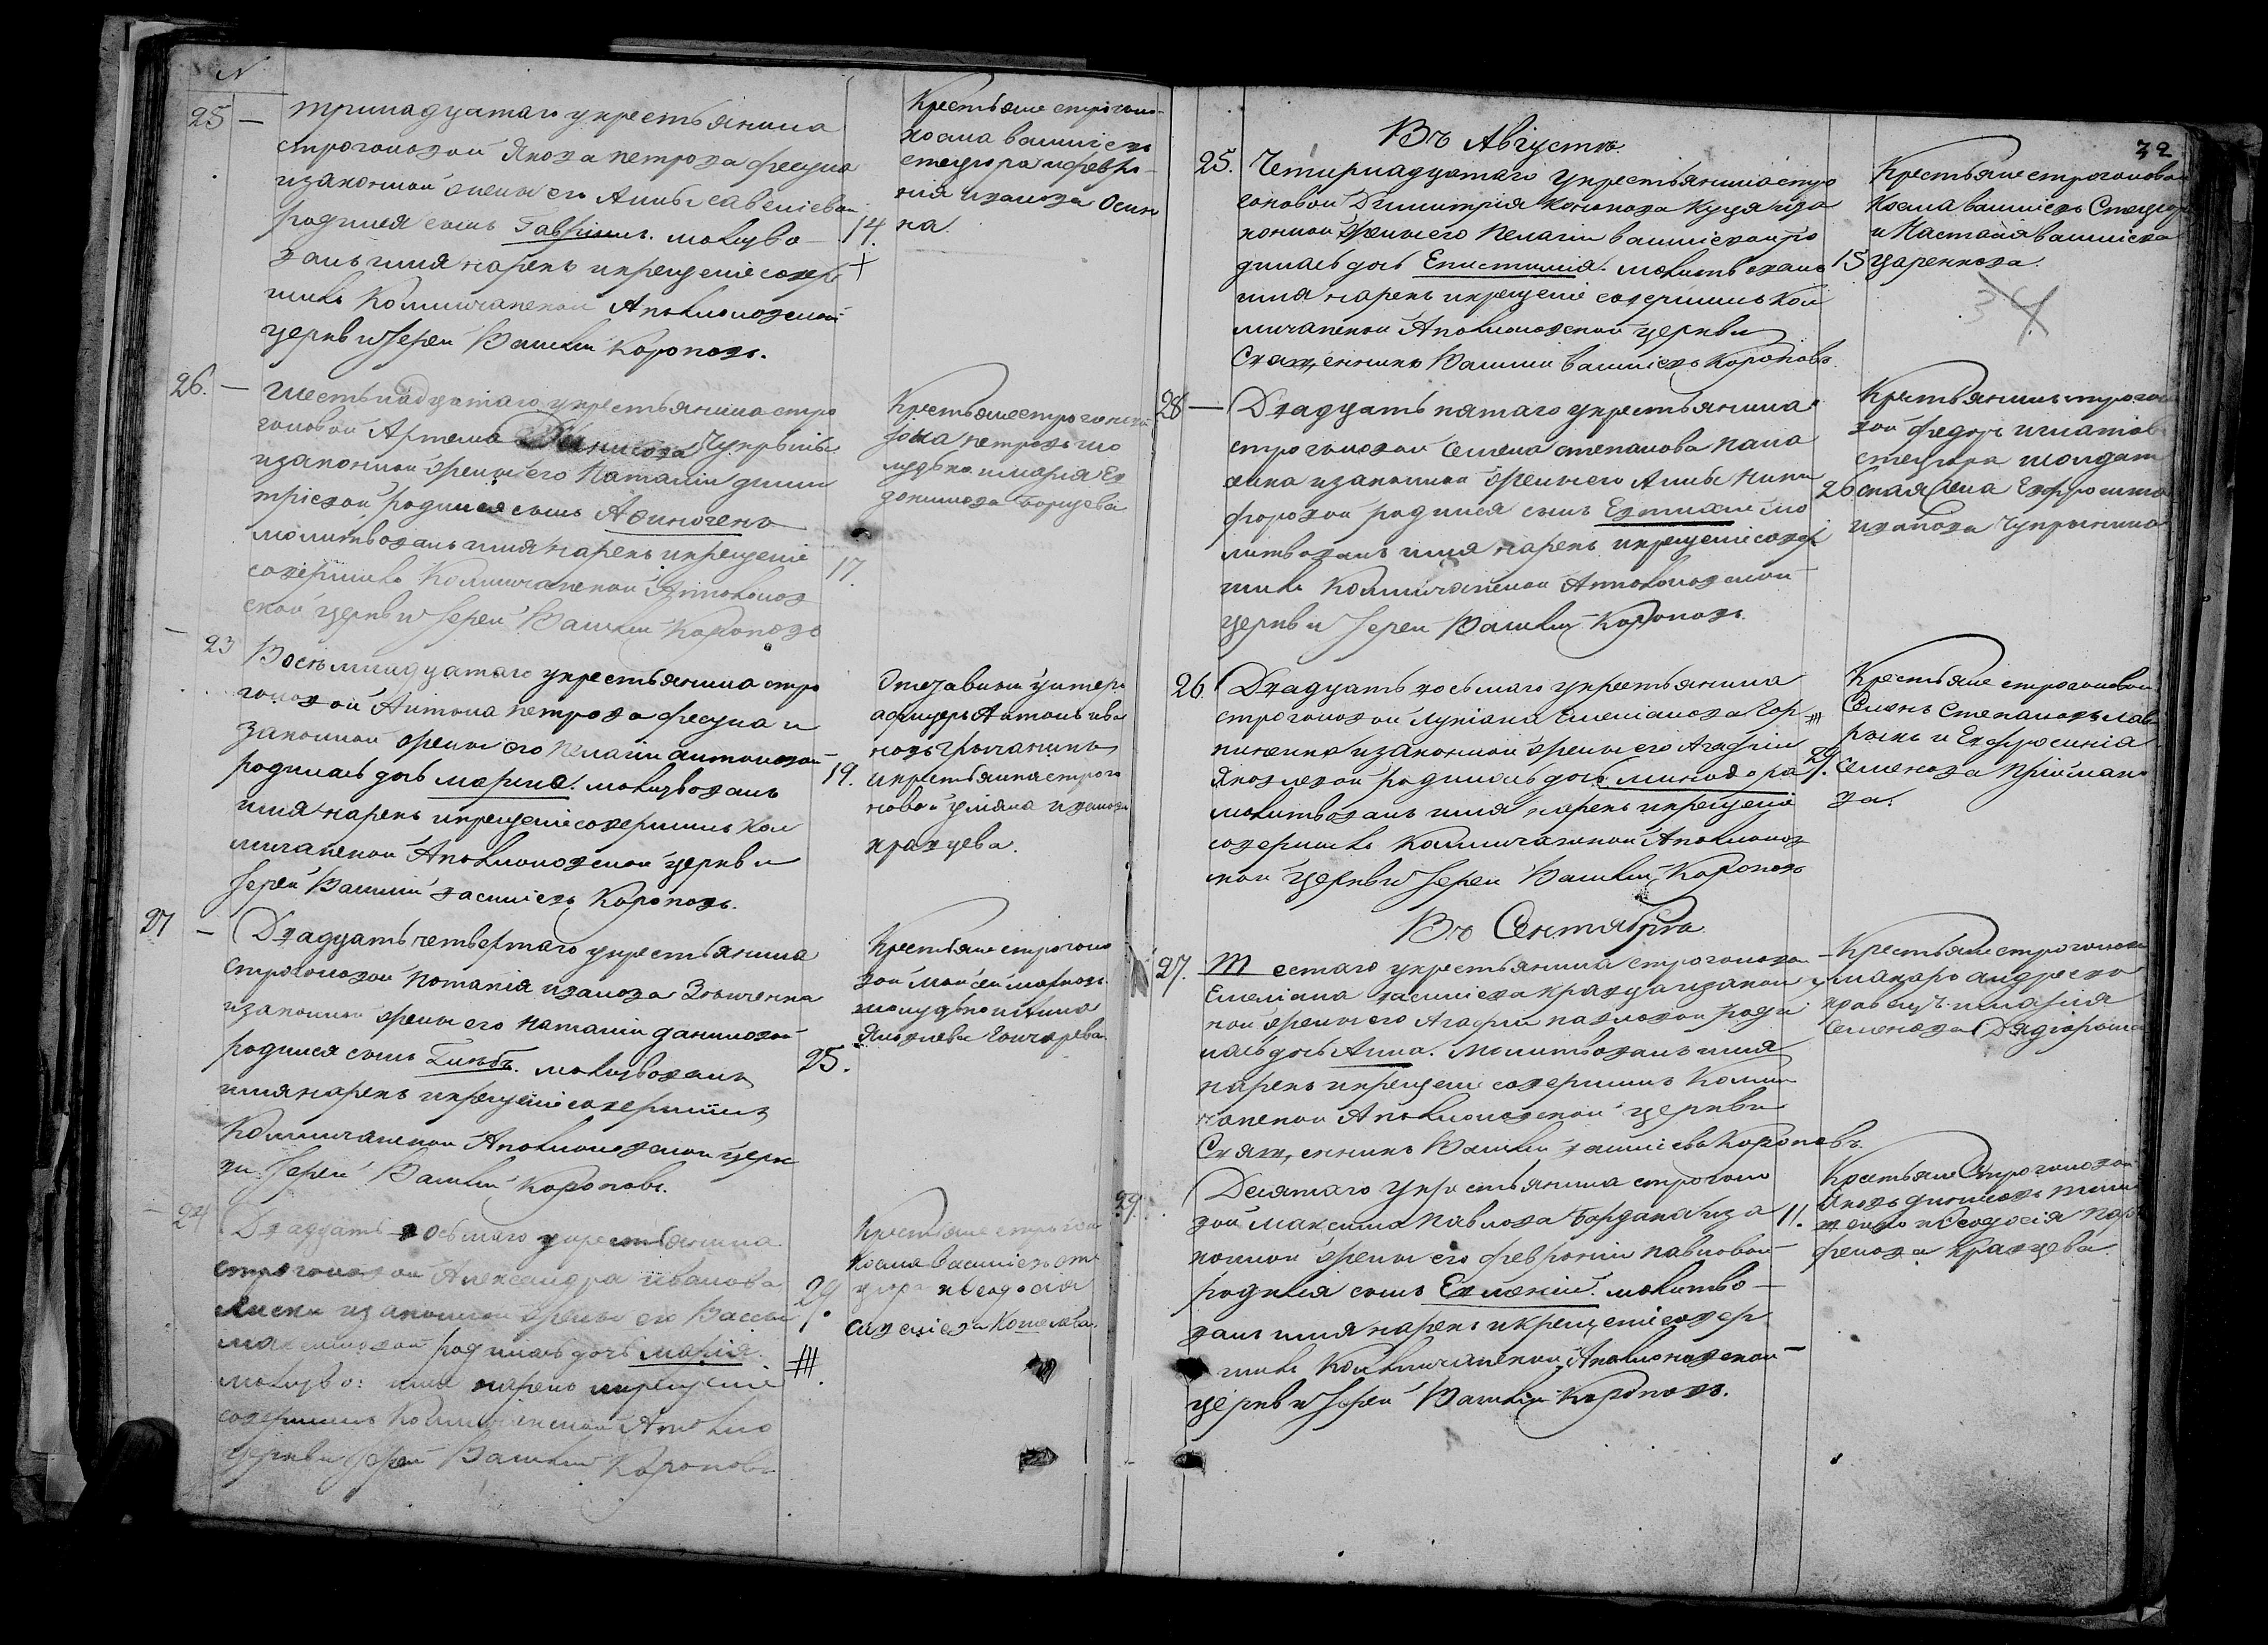 N
25 —
тринадцатаго укрестьянина
строгоновой Якова петрова фесуна
изаконной жены его Анны савелiевой
родился сынъ Гавріилъ. молитво
валъ имя нарекъ икрещеніе совер
шилъ Колмичанской Аполлоновской
церкви Іерей Василій Короповъ.
14.
+
Крестьяне строгоно-
косма василіевъ
стецюра ифевро-
нія иванова Осин
на.
26. —
Шестьнадцатаго укрестьянина стро
гоновой Артема Чупрыны
изаконной жены его Наталіи дими
тріевой родился сынъ Авиногенъ
молитвовалъ имя нарекъ икрещеніе
совершилъ Колмичанской Аполлонов
ской церкви Іерей Василій Короповъ
17.
Крестьяне строгоновой
петровъ шо
лудько имарія Ев
докимова Борцева
23
Восьмнадцатаго укрестьянина стро
гоновой Антона петрова фесуна и
законной жены его Пелагіи антоновой
родилась дочь марина. молитвовалъ
имя нарекъ икрещеніе совершилъ Кол
мичанской Аполлоновской церкви
Іерей Василій василіевъ Короповъ.
19.
Отставной унтеръ
афицеръ Антонъ ива
новъ
икрестьянка строго
новой уліяна иванова
кравцева.
27 —
Двадцать четвертаго укрестьянина
строгоновой потапія иванова
изаконной жены его наталіи даниловой
родился сынъ Глебъ. молитвовалъ
имя нарекъ икрещеніе совершилъ
Колмичанской Аполлоновской церк
ви Іерей Василій Короповъ.
25.
Крестьяне строгоно
вой моисей марковъ
шолудько и Анна
Яковлева Гончарева.
24
Двадцать восьмаго укрестьянина
строгоновой Александра иванова
Лиски изаконной жены его Вассы
максимовой родилась дочь марія.
молитво: имя нарекъ икрещеніе
совершилъ Колмичанской Аполло
церкви Іерей Василій Короповъ
29.
Крестьяне строгон
Косма Василіевъ сте
цюра иѳеодосія
Кошелева.
32
Въ Августѣ.
25.
Четирнадцатаго укрестьянина стро
гоновой Димитрія Кононова Куця иза
конной жены его Пелагіи василіевой ро
дилась дочь Епистимія. молитвовалъ
имя нарекъ икрещеніе совершилъ Кол
мичанской Аполлоновской церкви
Священникъ Василій василіевъ Короповъ.
15
Крестьяне строгоновой
Косма василіевъ Стецюра
и Настасія василіева
царенкова.
34
28 —
Двадцать пятаго укрестьянина
строгоновой Семена степанова пана
сенка изаконной жены его Анны ники
форовой родился сынъ Евтихій мо
литвовалъ имя нарекъ икрещеніе совер
шилъ Колмичанской Аполлоновской
церкви Іерей Василій Короповъ.
26
Крестьянинъ строгоно
вой федоръ игнатов
стецюра исолдат
ская жена Евфросинія
иванова Чупрынина
26
Двадцать восьмаго укрестьянина
строгоновой Лукіана Емеліанова Гор
пиненка изаконной жены его Агафіи
Яковлевой родилась дочь минодора
молитвовалъ имя нарекъ икрещеніе
совершилъ Колмичанской Аполлонов
ской церкви Іерей Василій Короповъ
29.
Крестьяне строгоновой
Семенъ Степановъ лав
рыкъ и Евфросинія
Семенова Пріймако
ва.
Въ Сентябрѣ
27.
Шестаго укрестьянина строгоновой
Емеліана василіева кравца изакон
ной жены его Агафіи павловой роди
лась дочь Анна. молитвовалъ имя
нарекъ икрещеніе совершилъ Колми
чанской Аполлоновской церкви
Священникъ Василій василіевъ Короповъ.
Крестьяне строгоновой
макаръ андреевъ
кравецъ имарія
Семенова Дядюрина
29.
Десятаго укрестьянина строгоно
вой максима павлова Бардака иза
конной жены его февроніи павловой
родился сынъ Евменій. молитво-
валъ имя нарекъ икрещеніе совер
шилъ Колмичанской Аполлоновской
церкви Іерей Василій Короповъ.
11.
Крестьяне Строгоновой
Яковъ діонисовъ
иѲеодосія пар
фенова Кравцева.